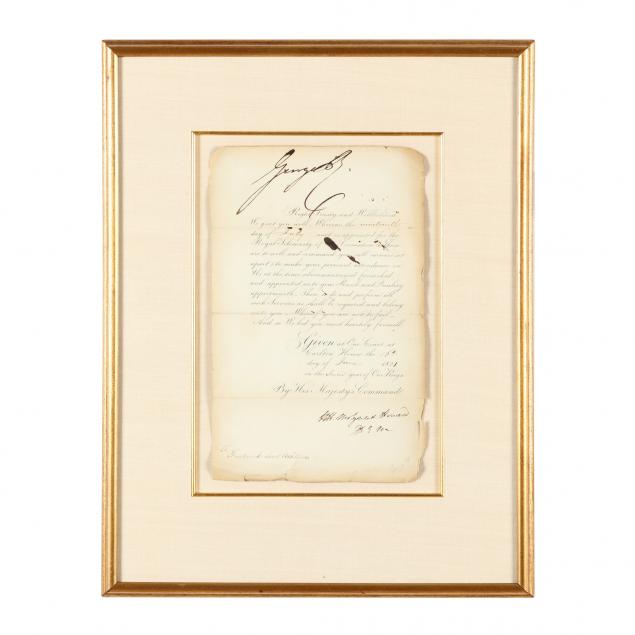 George R.
Right Trusty and Wellbeloved
We greet you well. Whereas the nineteenth
day of July next is appointed for the
Royal Solemnity of Our Coronation These
are to will and command you all excuses set
apart to make your personal attendance on
Us at the time above mentioned furnished
and appointed as to your Rank and Quality
appertaineth There to do and perform all
such Services as shall be required and belong
unto you Whereof you are not to fail
And so We bid you most heartily farewell
Given at Our Court at
Carlton House the
day of 1821
in the Second year of Our Reign
By His Majesty's Command
Howard